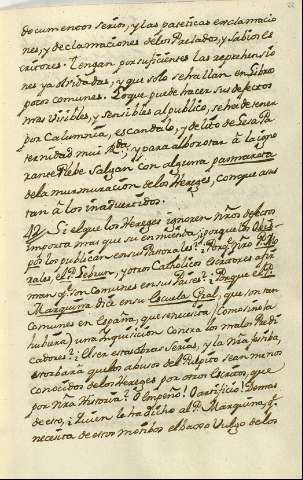 documentos serios, y las pateticas exclamacio
nes, y declamaciones de los Prelados, y sabios es
critores. Tengan por suficientes las reprehensio
nes ya olvidadas, y que solo se hallan en Libros
poco comunes. Lo que puede hacer sus defectos
mas visibles, y sensibles al publico, se ha de tener
por Calumnia, escandalo, y delito de lesa Pa
ternidad mui Rda; y para alborotar à la igno
rante Plebe salgan con alguna pamarota
de la murmuracion de los Hereges, con que asus
tan à los inadvertidos.
42 Si el que los Hereges ignoren nros defectos
importa mas que su enmienda; porque los Obis
pos los publican en sus Pastorales?
rales, el P. y otros Catholicos Escritores afir
man q. son comunes en sus Paises? Porque el P.
Marquina dice en su Escuela Gral, que son tan
comunes en España, que se necesita (como sino la
hubiera) una Inquisicion contra los malos Predi
cadores? El ser estas obras serias, y la nra jocosa,
estorbarà que los abusos del Pulpito sean menos
conocidos de los Hereges por otros Escritos, que
por nra Historia? O empeño! O artificio! Demas
de eso, Quien le ha dicho al P. Marquina, q.
necesita de estos el baxo vulgo de los